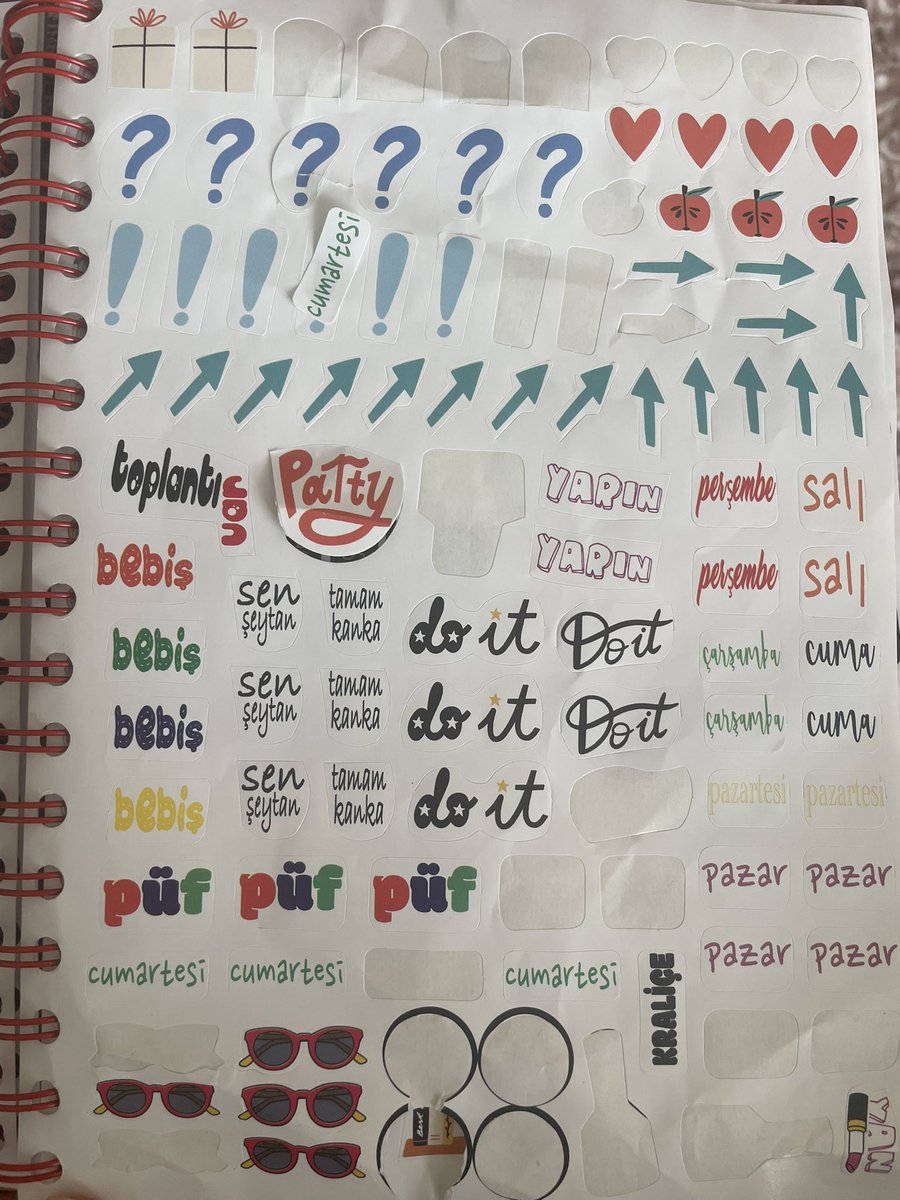 ? ? ? ? ? ?
! ! ! cumartesi ! !
toplantı var
Party
YARIN
perşembe
salı
bebiş
YARIN
perşembe
salı
sen şeytan
tamam kanka
do it
Do it
bebiş
çarşamba
cuma
sen şeytan
tamam kanka
do it
Do it
bebiş
çarşamba
cuma
sen şeytan
tamam kanka
do it
bebiş
pazartesi
pazartesi
püf
püf
püf
pazar
pazar
cumartesi
cumartesi
cumartesi
KRALİÇE
pazar
pazar
Best
YAN